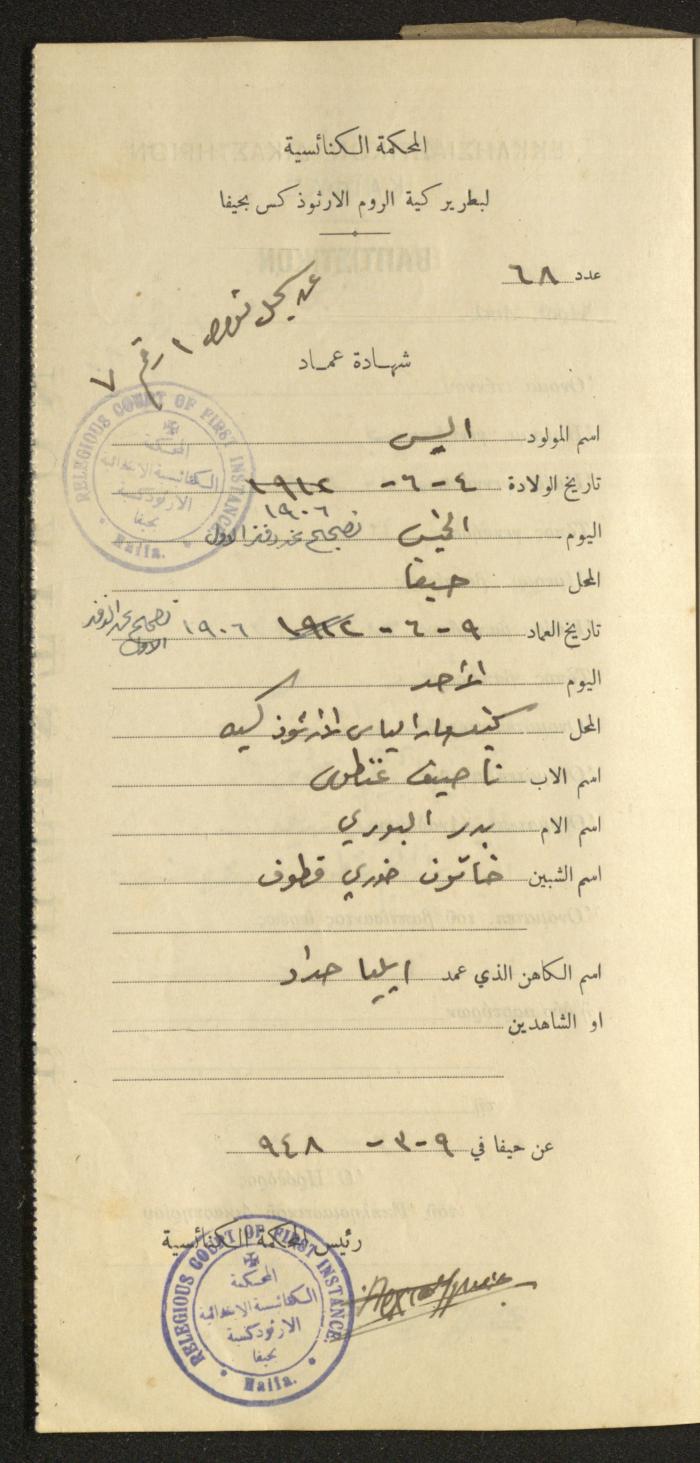 المحكمة الكنائسية
لبطريركية الروم الارثوذكس بحيفا
عدد ٦٨
عن سجل رقم ٧
شهادة عماد
RELEGIOUS COURT OF FIRST INSTANCE.
المحكمة
الكنائسية الابتدائية
الارثوذكسية
بحيفا
Haifa.
اسم المولود اليس
تاريخ الولادة ٤-٦- ١٩١٢
١٩٠٦
اليوم الخميس تصحيح عن دفتر الاول
المحل حيفا
تاريخ العماد ٩-٦- ١٩١٢ ١٩٠٦ تصحيح عن الدفتر الاول
اليوم الأحد
المحل كنيسة مار الياس الارثوذكسيه
اسم الاب ناصيف غنطوس
اسم الام بدر البوري
اسم الشبين خاتون خوري قطوف
اسم الكاهن الذي عمد ايليا حداد
او الشاهدين
عن حيفا في ٩-٣- ٩٤٨
رئيس المحكمة الكنائسية
RELEGIOUS COURT OF FIRST INSTANCE.
المحكمة
الكنائسية الابتدائية
الارثوذكسية
بحيفا
Haifa.